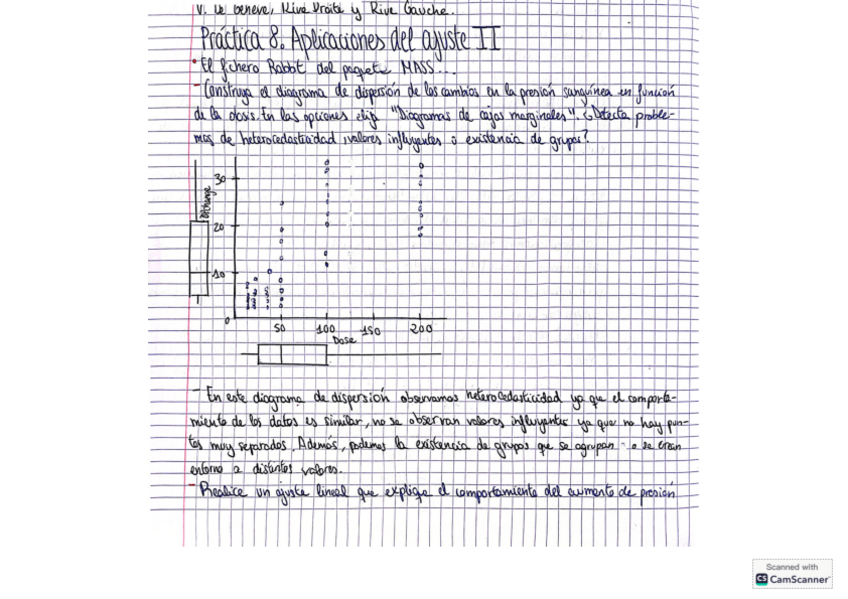 V. Le Deneve, Rive Droite y Rive Gauche.
Práctica 8. Aplicaciones del ajuste II
· El fichero Rabbit del paquete MASS...
- Construya el diagrama de dispersión de los cambios en la presión sanguínea en función
de la dosis. En las opciones elija "Diagramas de cajas marginales". ¿Detecta proble-
mas de heterocedasticidad, valores influyentes o existencia de grupos?
BPchange
30
20
10
0
50 100 150 200
Dose
- En este diagrama de dispersión observamos heterocedasticidad ya que el comporta-
miento de los datos es similar, no se observan valores influyentes ya que no hay pun-
tos muy separados. Además, podemos la existencia de grupos que se agrupan o se crean
entorno a distintos valores.
- Realice un ajuste lineal que explique el comportamiento del aumento de presión
Scanned with
CS CamScanner